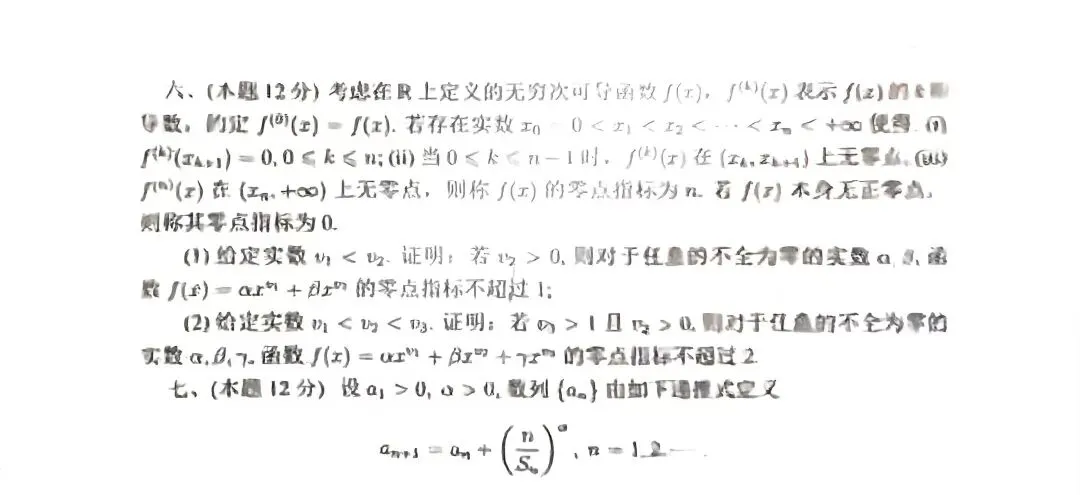 六、(本题 12 分) 考虑在 ℝ 上定义的无穷次可导函数 f(x), f^{(k)}(x) 表示 f(x) 的 k 阶
导数, 约定 f^{(0)}(x) = f(x). 若存在实数 x_0 = 0 < x_1 < x_2 < ⋯ < x_n < +∞ 使得 (i)
f^{(k)}(x_{k+1}) = 0, 0 ≤ k ≤ n; (ii) 当 0 ≤ k ≤ n−1 时, f^{(k)}(x) 在 (x_k, x_{k+1}) 上无零点, (iii)
f^{(n)}(x) 在 (x_n, +∞) 上无零点, 则称 f(x) 的零点指标为 n. 若 f(x) 本身无正零点,
则称其零点指标为 0.
(1) 给定实数 v_1 < v_2. 证明: 若 v_2 > 0, 则对于任意的不全为零的实数 α, β, 函
数 f(x) = αx^{v_1} + βx^{v_2} 的零点指标不超过 1;
(2) 给定实数 v_1 < v_2 < v_3. 证明: 若 > 1 且 > 0, 则对于任意的不全为零的
实数 α, β, γ, 函数 f(x) = αx^{v_1} + βx^{v_2} + γx^{v_3} 的零点指标不超过 2.
七、(本题 12 分) 设 a_1 > 0, α > 0, 数列 {a_n} 由如下递推式定义
a_{n+1} = a_n + (n/S_n)^α, n = 1, 2, ⋯.